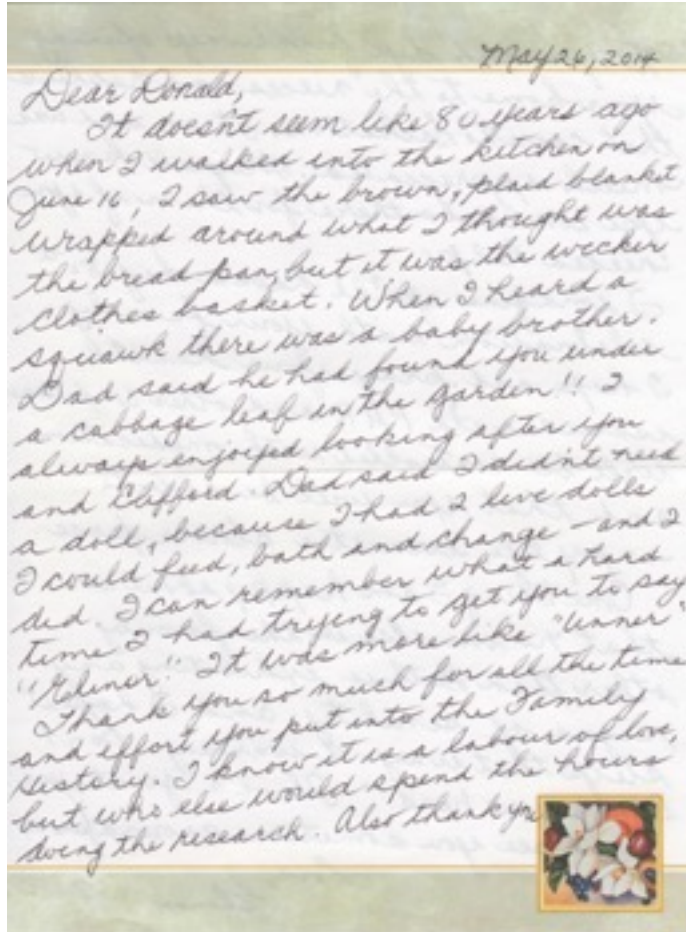 May 26, 2014
Dear Donald,
It doesn't seem like 80 years ago
when I walked into the kitchen on
June 16, I saw the brown, plaid blanket
wrapped around what I thought was
the bread pan, but it was the wicker
clothes basket. When I heard a
squawk there was a baby brother.
Dad said he had found you under
a cabbage leaf in the garden!! I
always enjoyed looking after you
and Clifford. Dad said I didn't need
a doll, because I had 2 live dolls
I could feed, bath and change - and I
did. I can remember what a hard
time I had trying to get you to say
"Elinor." It was more like "Unner"
Thank you so much for all the time
and effort you put into the Family
History. I know it is a labour of love,
but who else would spend the hours
doing the research. Also thank you